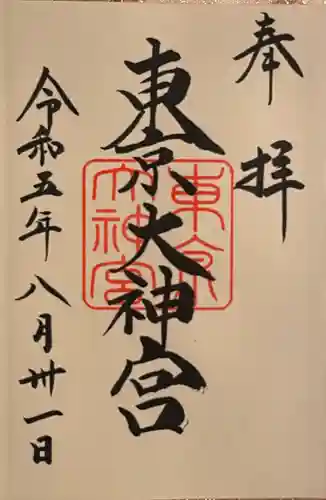 奉拝
東京大神宮
東京
大神宮
令和五年八月卅一日